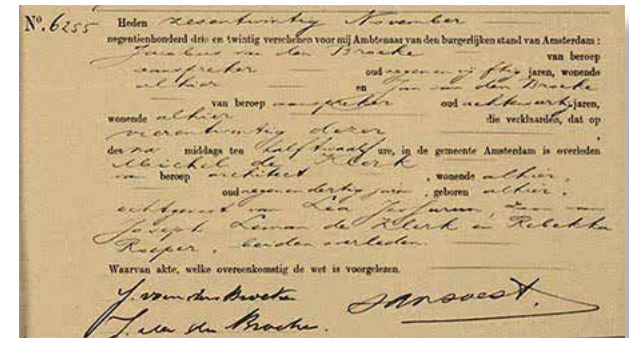 Nº. 6255 Heden zesentwintig November
negentienhonderd drie en twintig verschenen voor mij Ambtenaar van den burgerlijken stand van Amsterdam:
Jacobus van den Broeke van beroep
aanspreker oud negen en vijftig jaren, wonende
alhier en Jan van den Broeke
van beroep aanspreker oud jaren,
wonende alhier die verklaarden, dat op
vierentwintig dezer
des na middags ten half twaalf ure, in de gemeente Amsterdam is overleden
Michel de Klerk
van beroep architect, wonende alhier,
oud negen en dertig jaren, geboren alhier,
echtgenoot van Lea Jessurun, zoon van
Joseph Leman de Klerk en Rebekka
Roeper, beiden overleden.
Waarvan akte, welke overeenkomstig de wet is voorgelezen.
J. van den Broeke
J. van den Broeke.